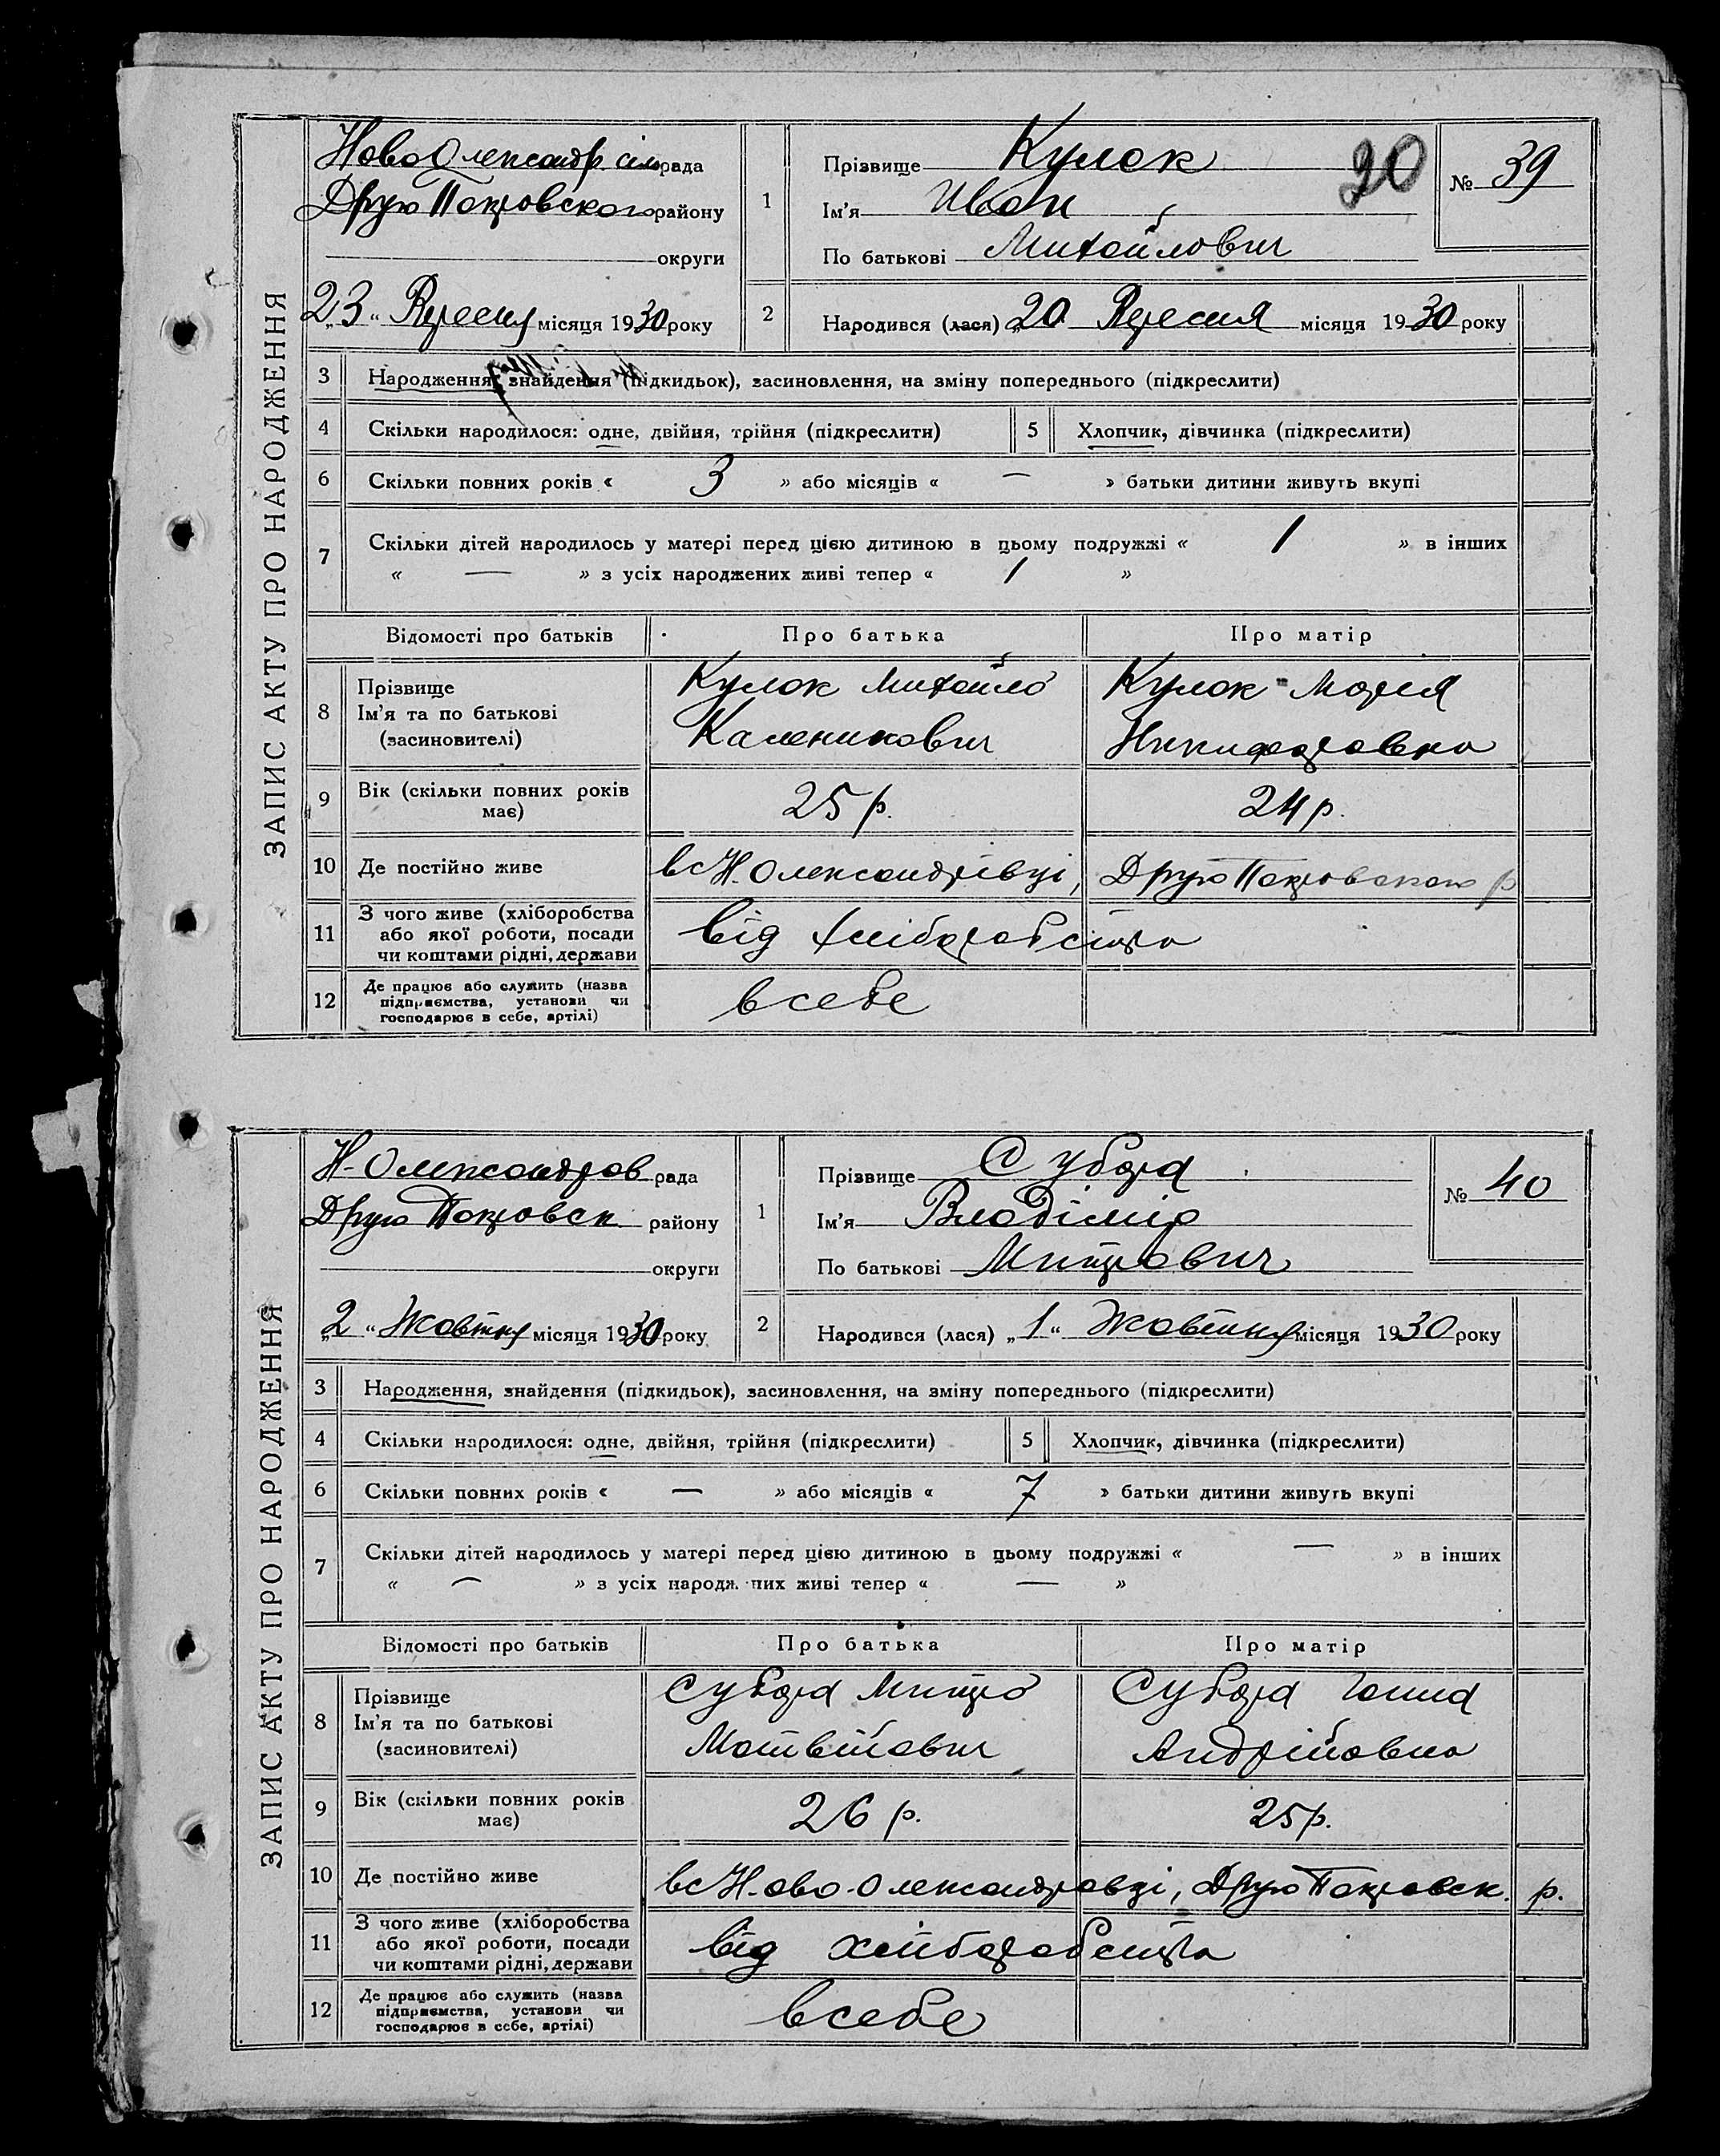 ЗАПИС АКТУ ПРО НАРОДЖЕННЯ
НовоОлександр. сільрада
ДругоПокровского району
округи
„23“ Вересня місяця 1930 року
1
Прізвище Кулок
20
Ім'я Иван
По батькові Михайлович
№ 39
2
Народився (лася) „20 Вересня місяця 1930 року
3 Народження, знайдення (підкидьок), засиновлення, на зміну попереднього (підкреслити)
4 Скільки народилося: одне, двійня, трійня (підкреслити) 5 Хлопчик, дівчинка (підкреслити)
6 Скільки повних років « 3 » або місяців « — » батьки дитини живуть вкупі
7 Скільки дітей народилось у матері перед цією дитиною в цьому подружжі « 1 » в інших
« — » з усіх народжених живі тепер « 1 »
Відомості про батьків Про батька Про матір
8 Прізвище
Ім'я та по батькові
(засиновителі)
Кулок Михайло
Каленикович
Кулок Мария
Никифоровна
9 Вік (скільки повних років
має)
25 р. 24 р.
10 Де постійно живе в с Н. Олександрівці, ДругоПокровского р
11 З чого живе (хліборобства
або якої роботи, посади
чи коштами рідні, держави
від хліборобства
12 Де працює або служить (назва
підприємства, установи чи
господарює в себе, артілі)
в себе
ЗАПИС АКТУ ПРО НАРОДЖЕННЯ
Н-Олександров рада
ДругоПокровск району
округи
„2“ Жовтня місяця 1930 року
1
Прізвище Субора
Ім'я Владімір
По батькові Митрович
№ 40
2
Народився (лася) „1“ Жовтня місяця 1930 року
3 Народження, знайдення (підкидьок), засиновлення, на зміну попереднього (підкреслити)
4 Скільки народилося: одне, двійня, трійня (підкреслити) 5 Хлопчик, дівчинка (підкреслити)
6 Скільки повних років « — » або місяців « 7 » батьки дитини живуть вкупі
7 Скільки дітей народилось у матері перед цією дитиною в цьому подружжі « — » в інших
« — » з усіх народж них живі тепер « — »
Відомості про батьків Про батька Про матір
8 Прізвище
Ім'я та по батькові
(засиновителі)
Субора Митро
Матвійович
Субора
Андрійовна
9 Вік (скільки повних років
має)
26 р. 25 р.
10 Де постійно живе в с Н-ово-Олександровці, ДругоПокровск. р.
11 З чого живе (хліборобства
або якої роботи, посади
чи коштами рідні, держави
від хліборобства
12 Де працює або служить (назва
підприємства, установи чи
господарює в себе, артілі)
в себе